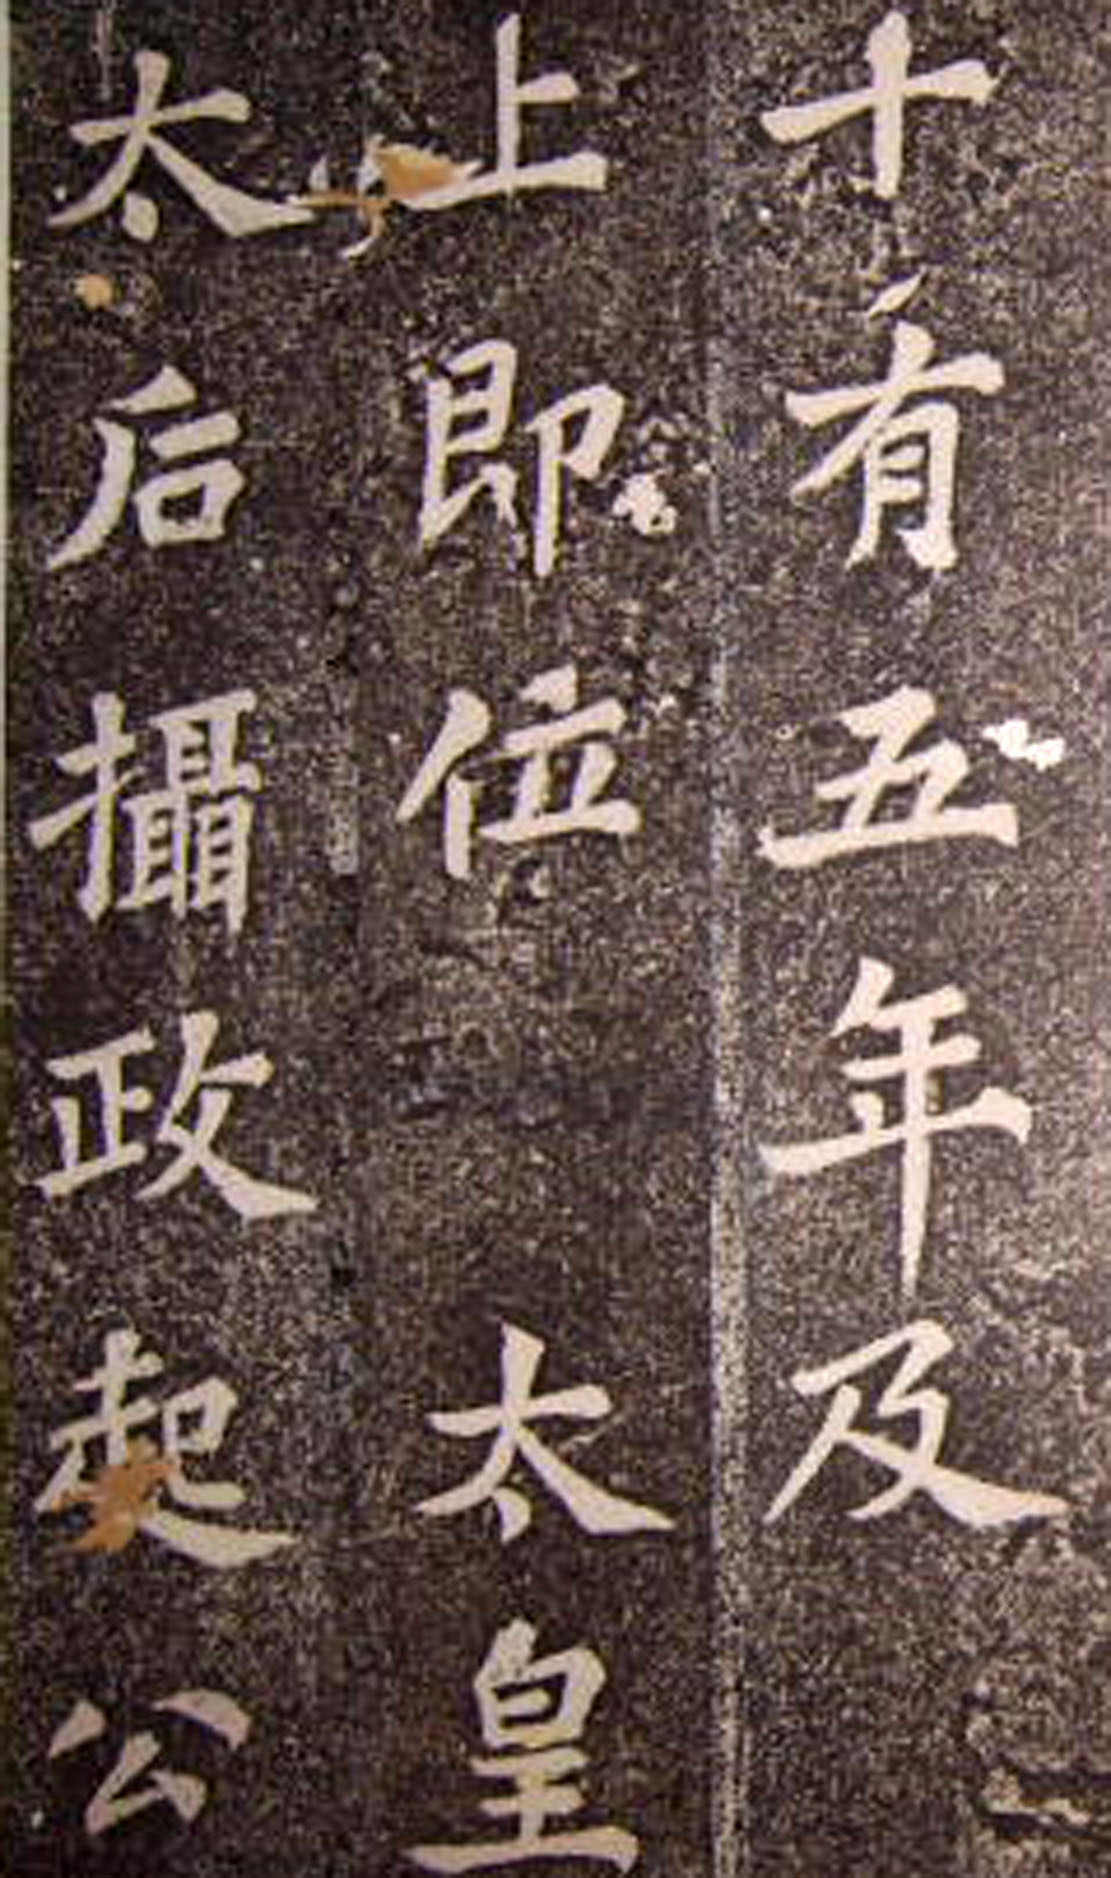 十有五年及
上即位太皇
太后攝政起公